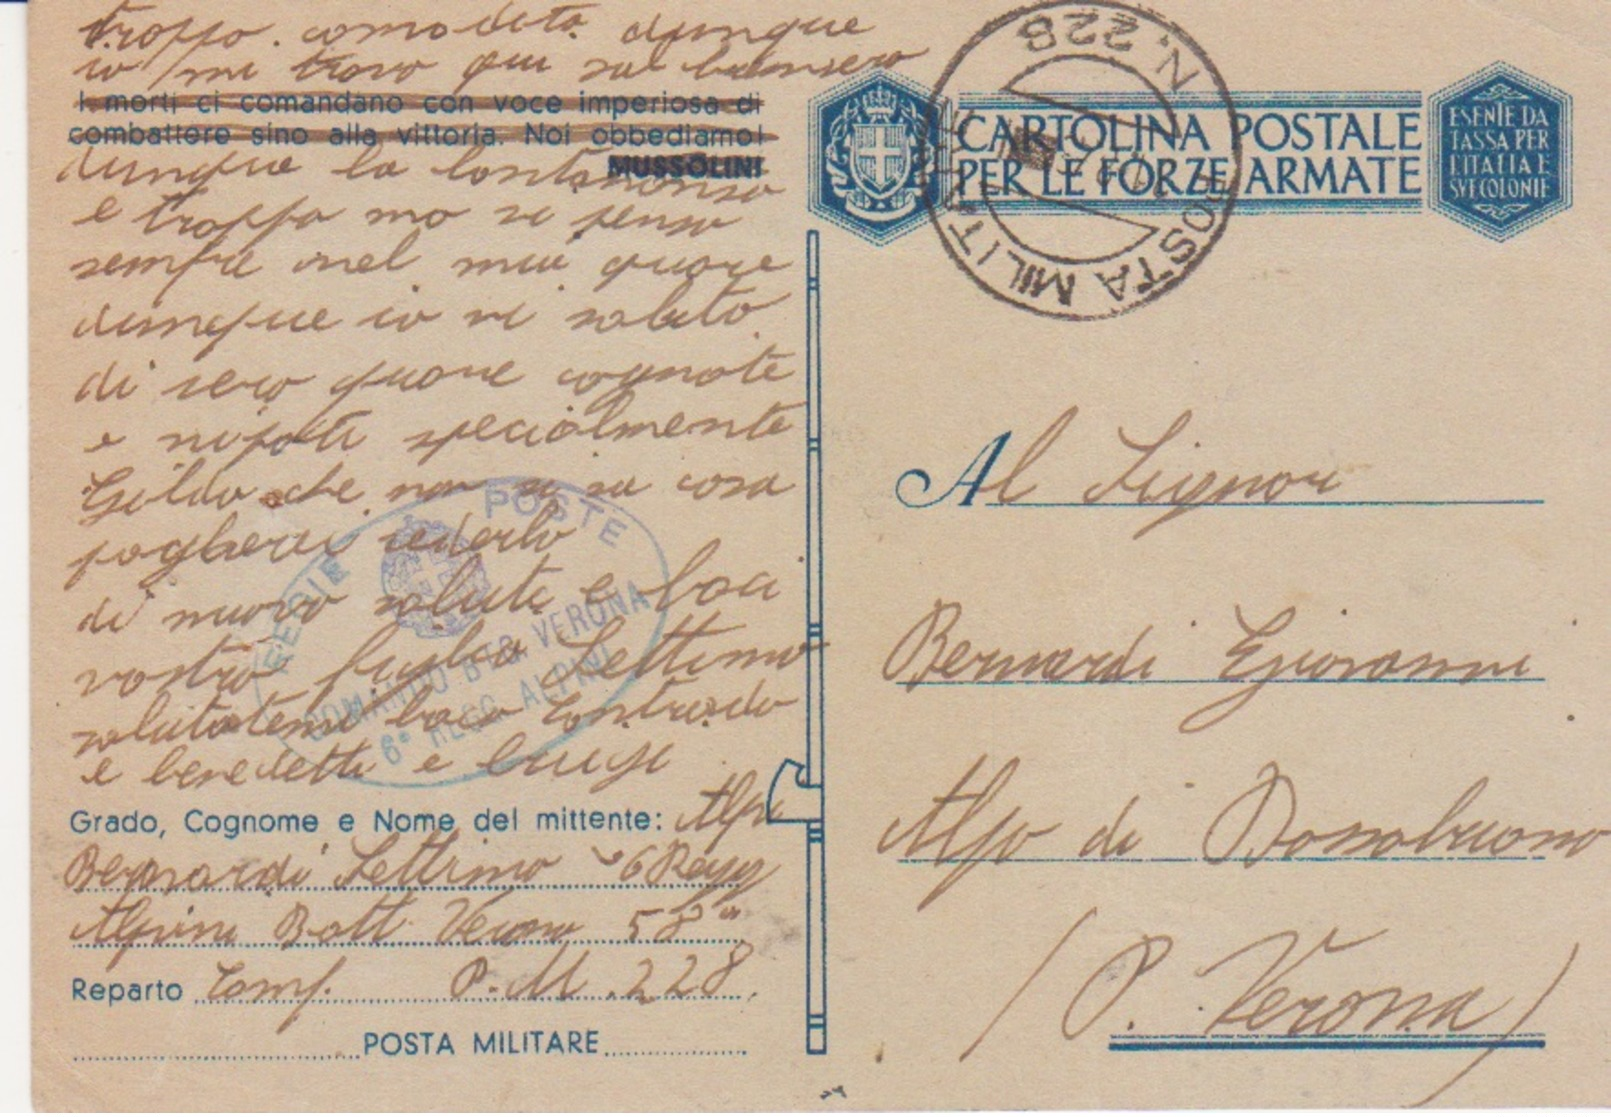 troppo. comodeta. dunque
io mi trovo qui sul
I morti ci comandano con voce imperiosa di
combattere sino alla vittoria. Noi obbediamo!
MUSSOLINI
dunque la lontananza
e troppa ma vi penso
sempre nel mio quore
dunque io vi saluto
di vero quore cognate
e nipoti specialmente
Gildo che non si sa cosa
pagherei vederlo
di nuovo salute e baci
vostro figlio Settimo
salutatemi
e benedetti e Luigi
REGIE POSTE
COMANDO BTG. VERONA
6° REGG. ALPINI
Grado, Cognome e Nome del mittente: Alpi
Bernardi Settimo 6 Regg
Alpini Batt Verona 58ª
Reparto Comp. P. M. 228.
POSTA MILITARE
CARTOLINA POSTALE
PER LE FORZE ARMATE
ESENTE DA
TASSA PER
L'ITALIA E
SUE COLONIE
POSTA MILITARE
N. 228
Al Signor
Bernardi Giovanni
Alpo di Dossobuono
(P. Verona)